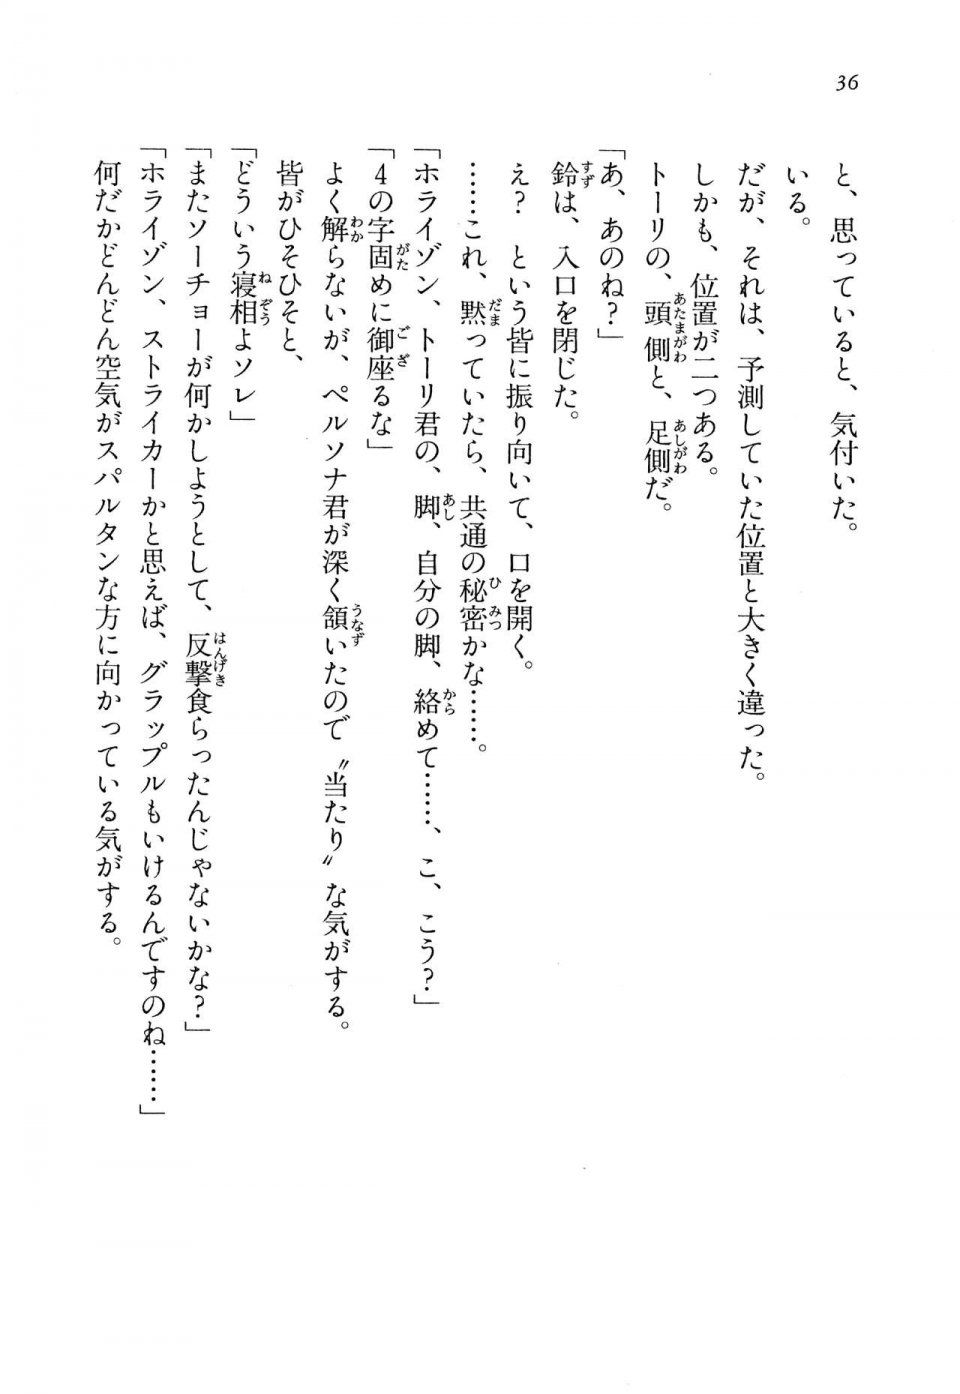 36
と、思っていると、気付いた。
いる。
だが、それは、予測していた位置と大きく違った。
しかも、位置が二つある。
トーリの、頭側と、足側だ。
「あ、あのね？」
鈴は、入口を閉じた。
え？　という皆に振り向いて、口を開く。
……これ、黙っていたら、共通の秘密かな……。
「ホライゾン、トーリ君の、脚、自分の脚、絡めて……、こ、こう？」
「４の字固めに御座るな」
よく解らないが、ペルソナ君が深く頷いたので〝当たり〟な気がする。
皆がひそひそと、
「どういう寝相よソレ」
「またソーチョーが何かしようとして、反撃食らったんじゃないかな？」
「ホライゾン、ストライカーかと思えば、グラップルもいけるんですのね……」
何だかどんどん空気がスパルタンな方に向かっている気がする。